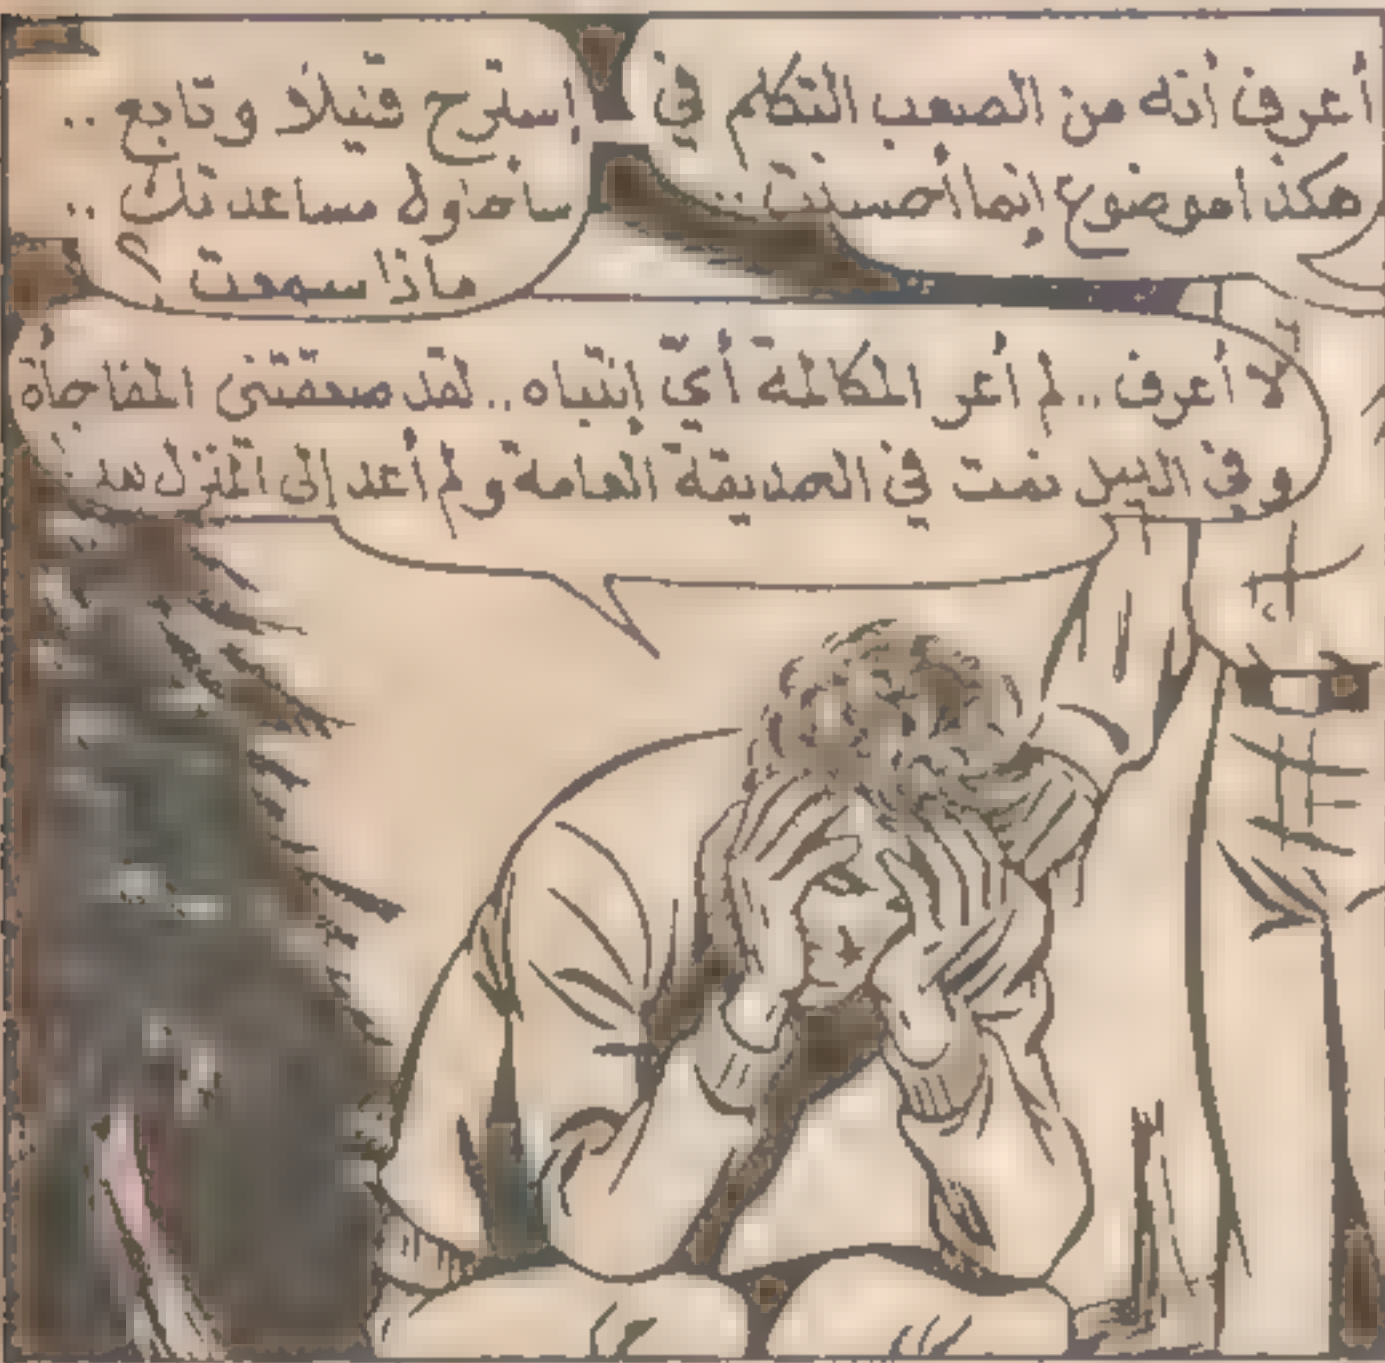 أعرف أنه من الصعب التكلم في
هكذا موضوع إنما أحسنت ..
إسترح قليلاً وتابع ..
سأحاول مساعدتك ..
ماذا سمعت ؟
لا أعرف .. لم أعر المكالمة أيّ إنتباه .. لقد صعقتني المفاجأة
وفي الليل نمت في الحديقة العامة ولم أعد إلى المنزل